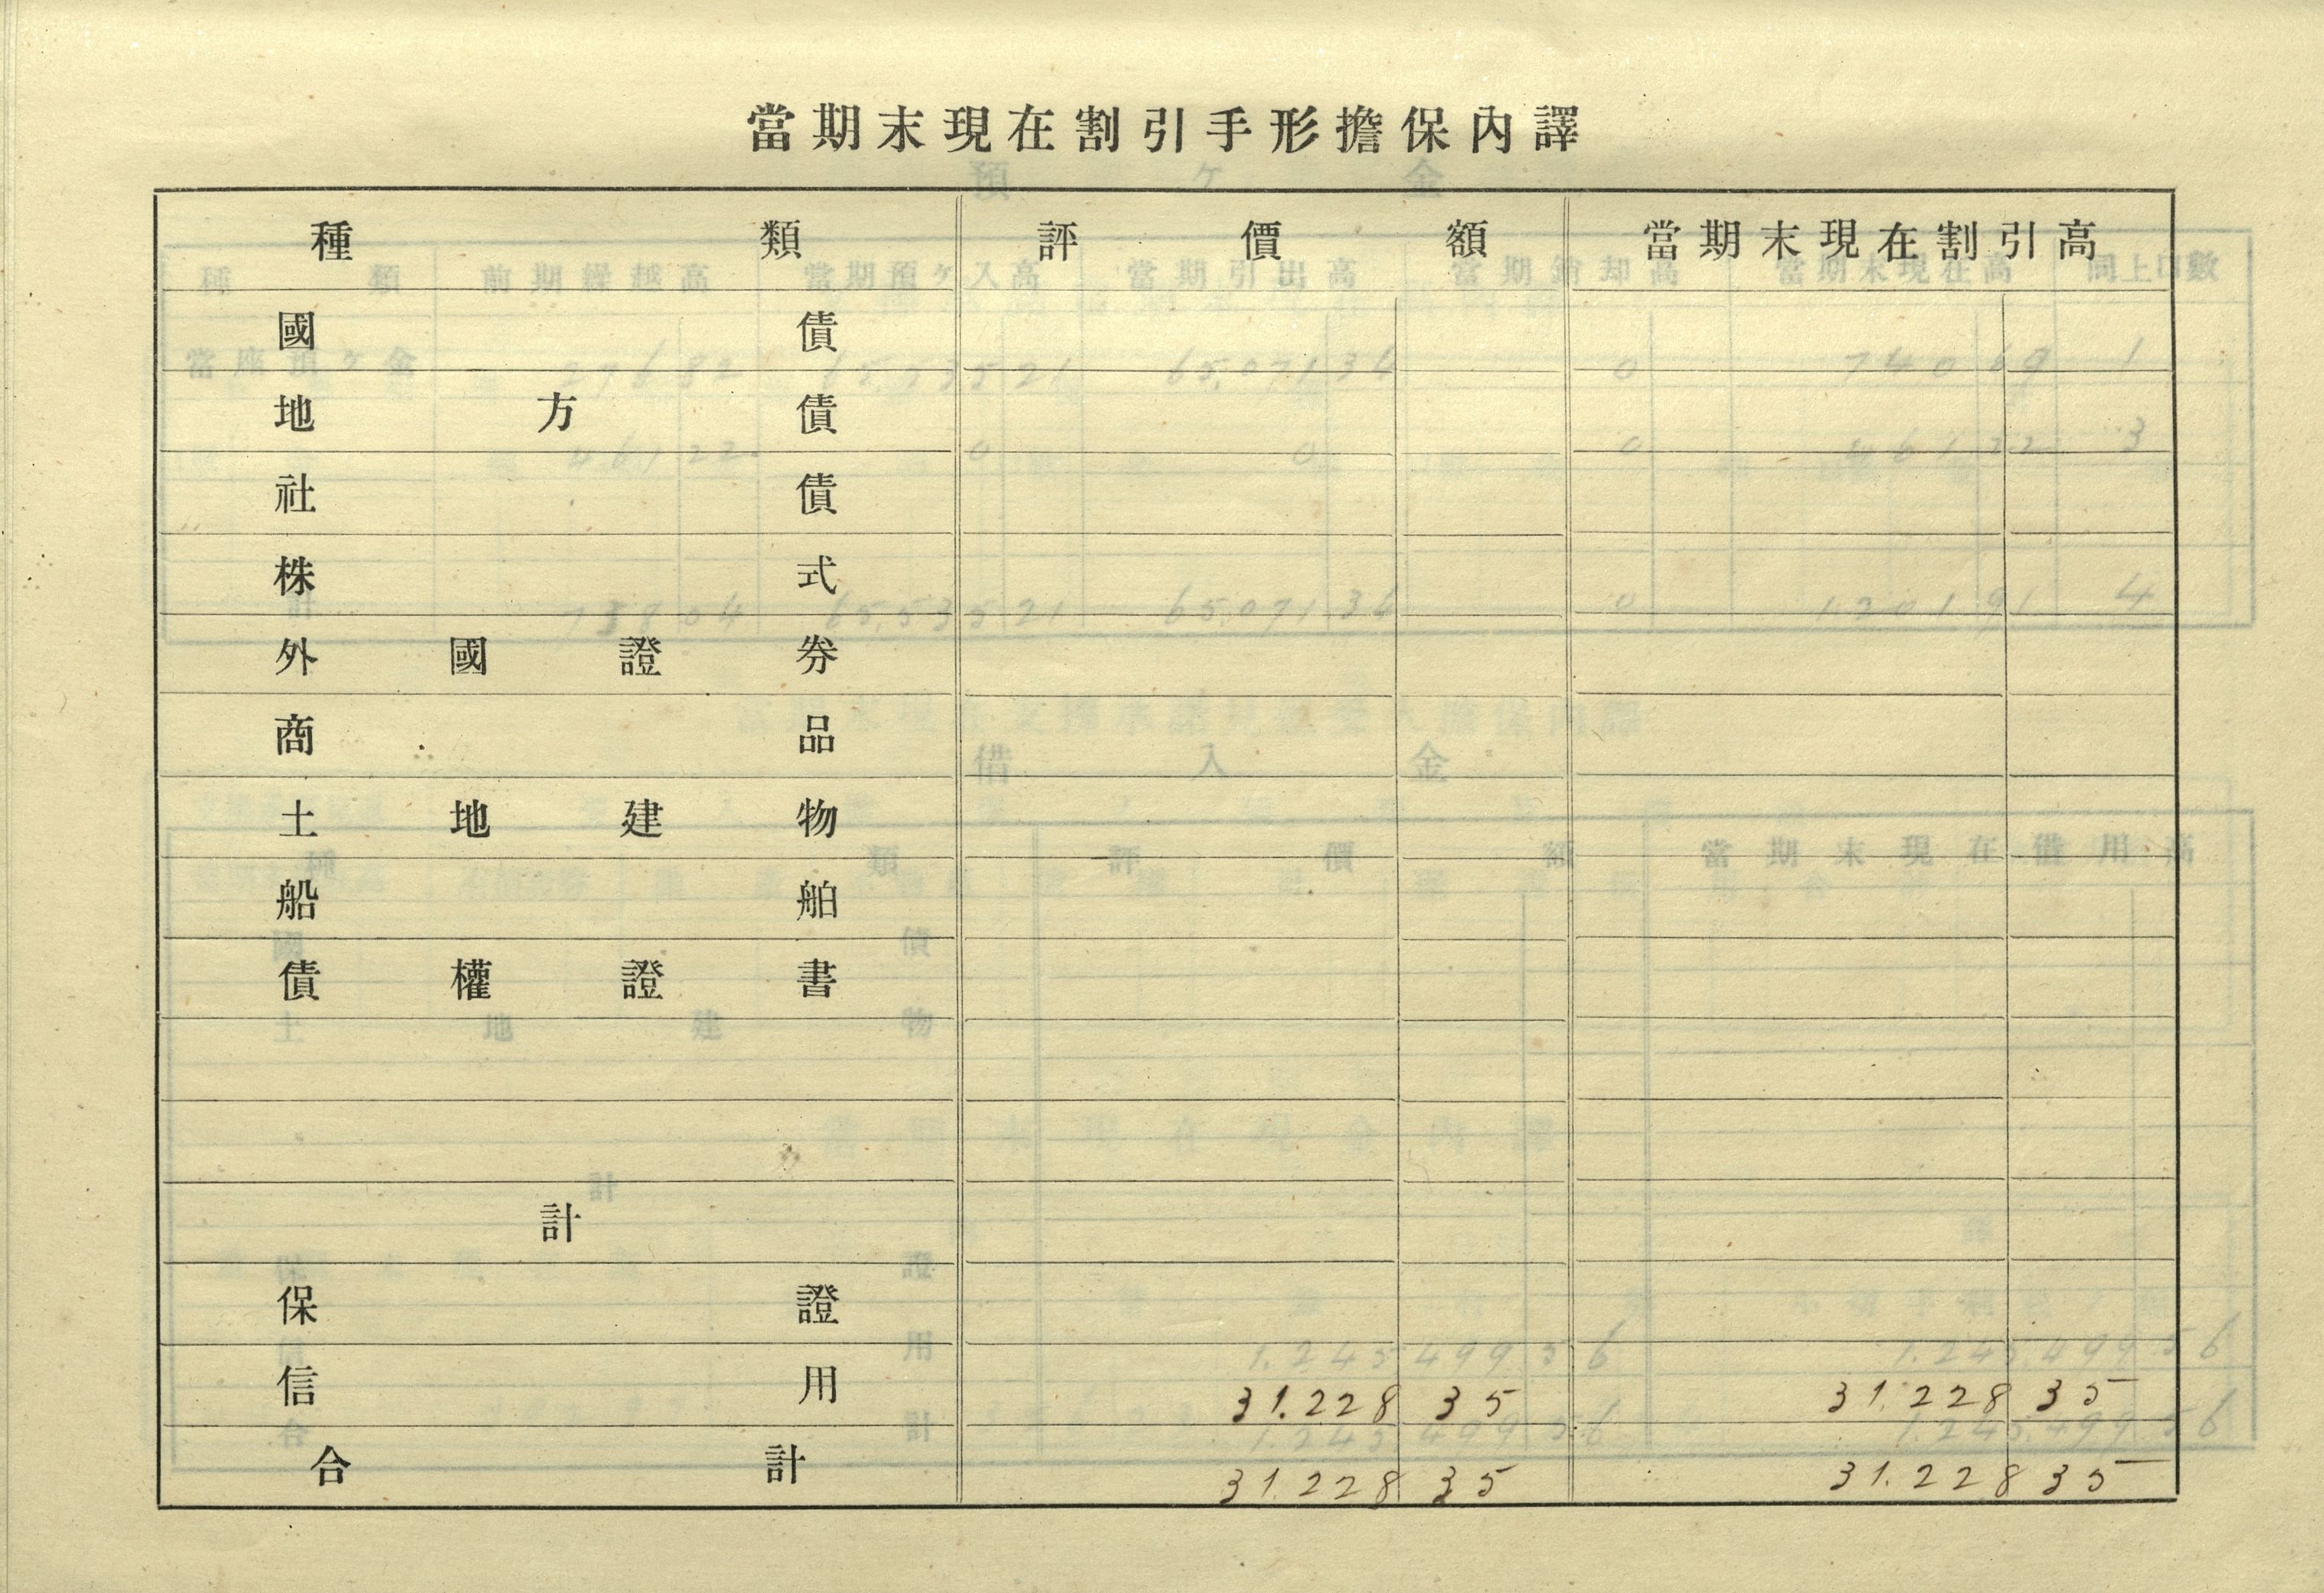 當期末現在割引手形擔保內譯
種類 評價額 當期末現在割引高
國債
地方債
社債
株式
外國證券
商品
土地建物
船舶
債權證書
計
保證
信用 31.228 35 31.228 35
合計 31.228 35 31.228 35